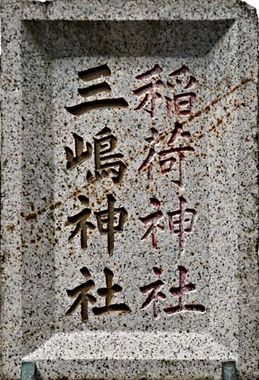 稲荷神社
三嶋神社